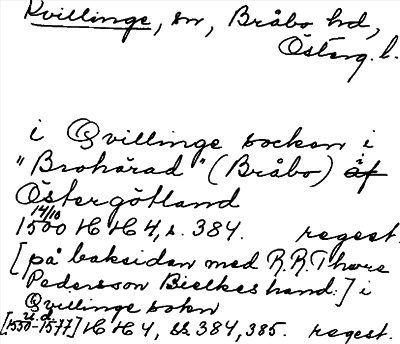 Kvillinge, sn, Bråbo hd,
Österg. l.
i Qvillinge socken i
"Brohärad" (Bråbo) i af
Östergötland
14/10
1500 HH 4, s. 384. regest.
[på baksidan med R.R. Thure
Pedersson Bielkes hand.] i
Qvillinge sokn
u.d.
[1550-1577] HH 4, ss 384, 385. regest.